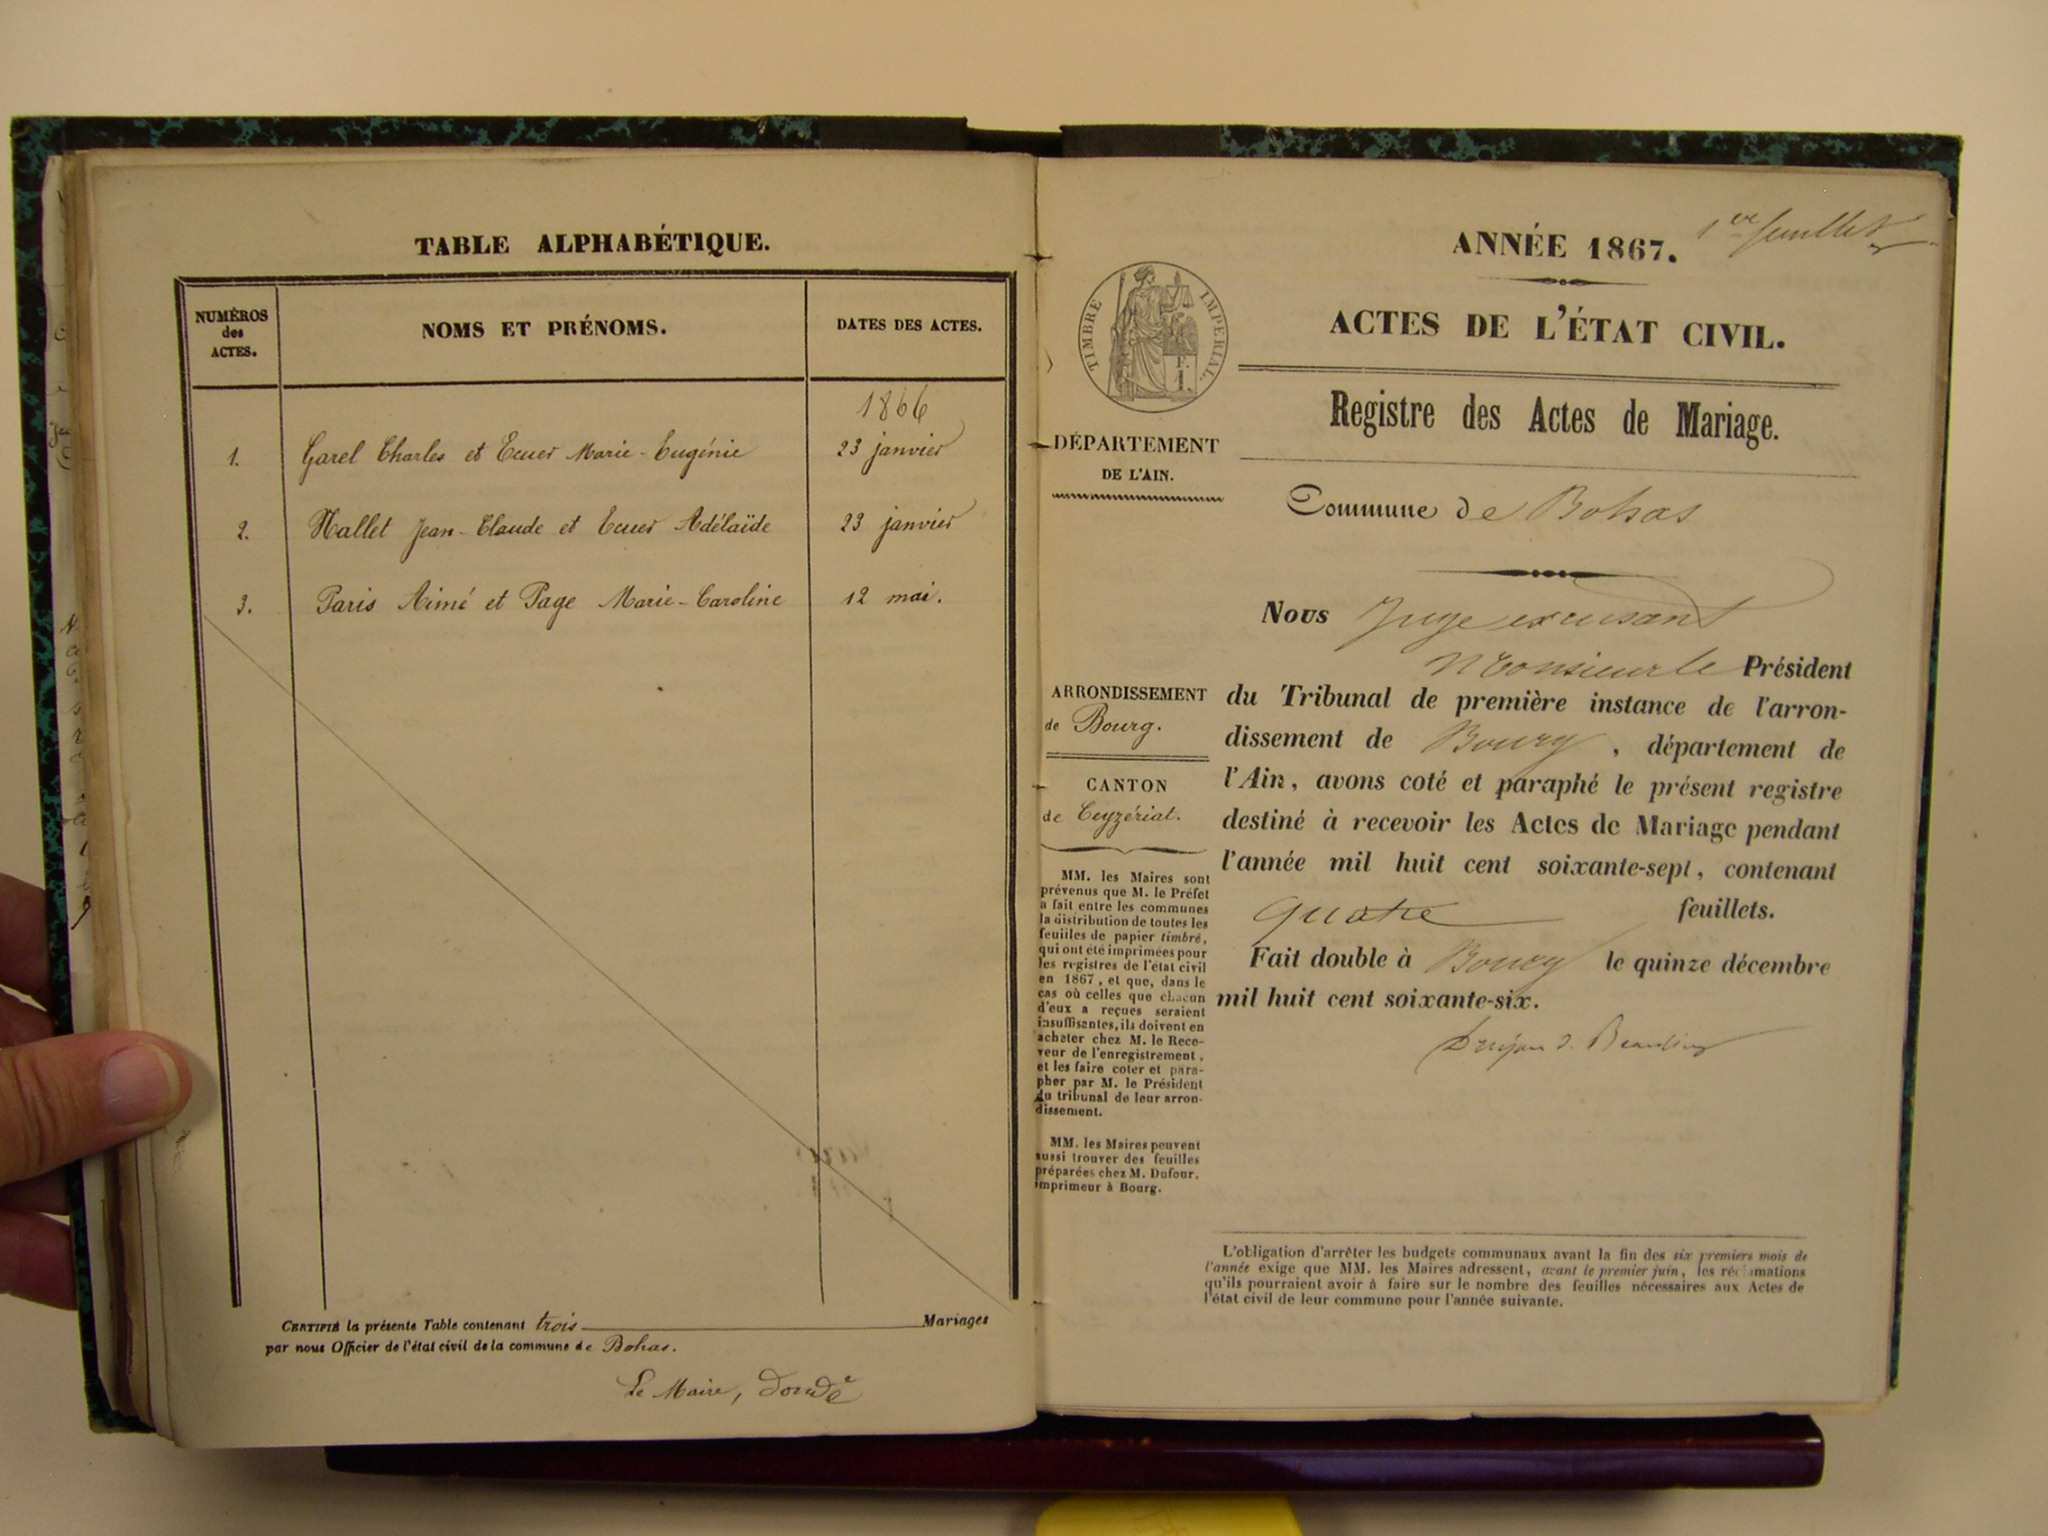 TABLE ALPHABÉTIQUE.
NUMÉROS
des
ACTES.
NOMS ET PRÉNOMS.
DATES DES ACTES.
1866
1. Garel Charles et Ecuer Marie-Eugénie 23 janvier
2. Hallet Jean-Claude et Ecuer Adélaïde 23 janvier
3. Paris Aimé et Page Marie-Caroline 12 mai.
CERTIFIÉ la présente Table contenant trois Mariages
par nous Officier de l'état civil de la commune de Bohas.
Le Maire,
1er feuillet
ANNÉE 1867.
ACTES DE L'ÉTAT CIVIL.
TIMBRE IMPÉRIAL.
Registre des Actes de Mariage.
DÉPARTEMENT
DE L'AIN.
Commune de Bohas
ARRONDISSEMENT
de Bourg.
CANTON
de Ceyzériat.
MM. les Maires sont
prévenus que M. le Préfet
a fait entre les communes
la distribution de toutes les
feuilles de papier timbré,
qui ont été imprimées pour
les registres de l'état civil
en 1867, et que, dans le
cas où celles que chacun
d'eux a reçues seraient
insuffisantes, ils doivent en
acheter chez M. le Rece-
veur de l'enregistrement,
et les faire coter et para-
pher par M. le Président
du tribunal de leur arron-
dissement.
MM. les Maires peuvent
aussi trouver des feuilles
préparées chez M. Dufour,
imprimeur à Bourg.
Nous Juge excusant
Monsieur le Président
du Tribunal de première instance de l'arron-
dissement de Bourg, département de
l'Ain, avons coté et paraphé le présent registre
destiné à recevoir les Actes de Mariage pendant
l'année mil huit cent soixante-sept, contenant
quatre feuillets.
Fait double à Bourg le quinze décembre
mil huit cent soixante-six.
L'obligation d'arrêter les budgets communaux avant la fin des six premiers mois de
l'année exige que MM. les Maires adressent, avant le premier juin, les réclamations
qu'ils pourraient avoir à faire sur le nombre des feuilles nécessaires aux Actes de
l'état civil de leur commune pour l'année suivante.